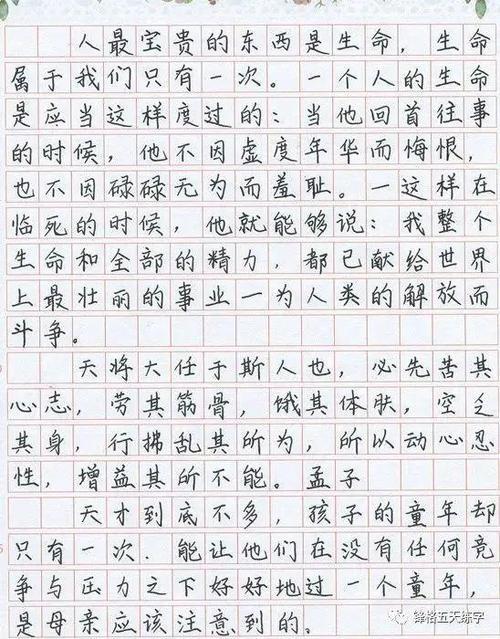 人最宝贵的东西是生命，生命
属于我们只有一次。一个人的生命
是应当这样度过的：当他回首往事
的时候，他不因虚度年华而悔恨，
也不因碌碌无为而羞耻。一这样在
临死的时候，他就能够说：我整个
生命和全部的精力，都已献给世界
上最壮丽的事业一为人类的解放而
斗争。
天将大任于斯人也，必先苦其
心志，劳其筋骨，饿其体肤，空乏
其身，行拂乱其所为，所以动心忍
性，增益其所不能。孟子
天才到底不多，孩子的童年却
只有一次．能让他们在没有任何竞
争与压力之下好好地过一个童年，
是母亲应该注意到的。
锋格五天练字